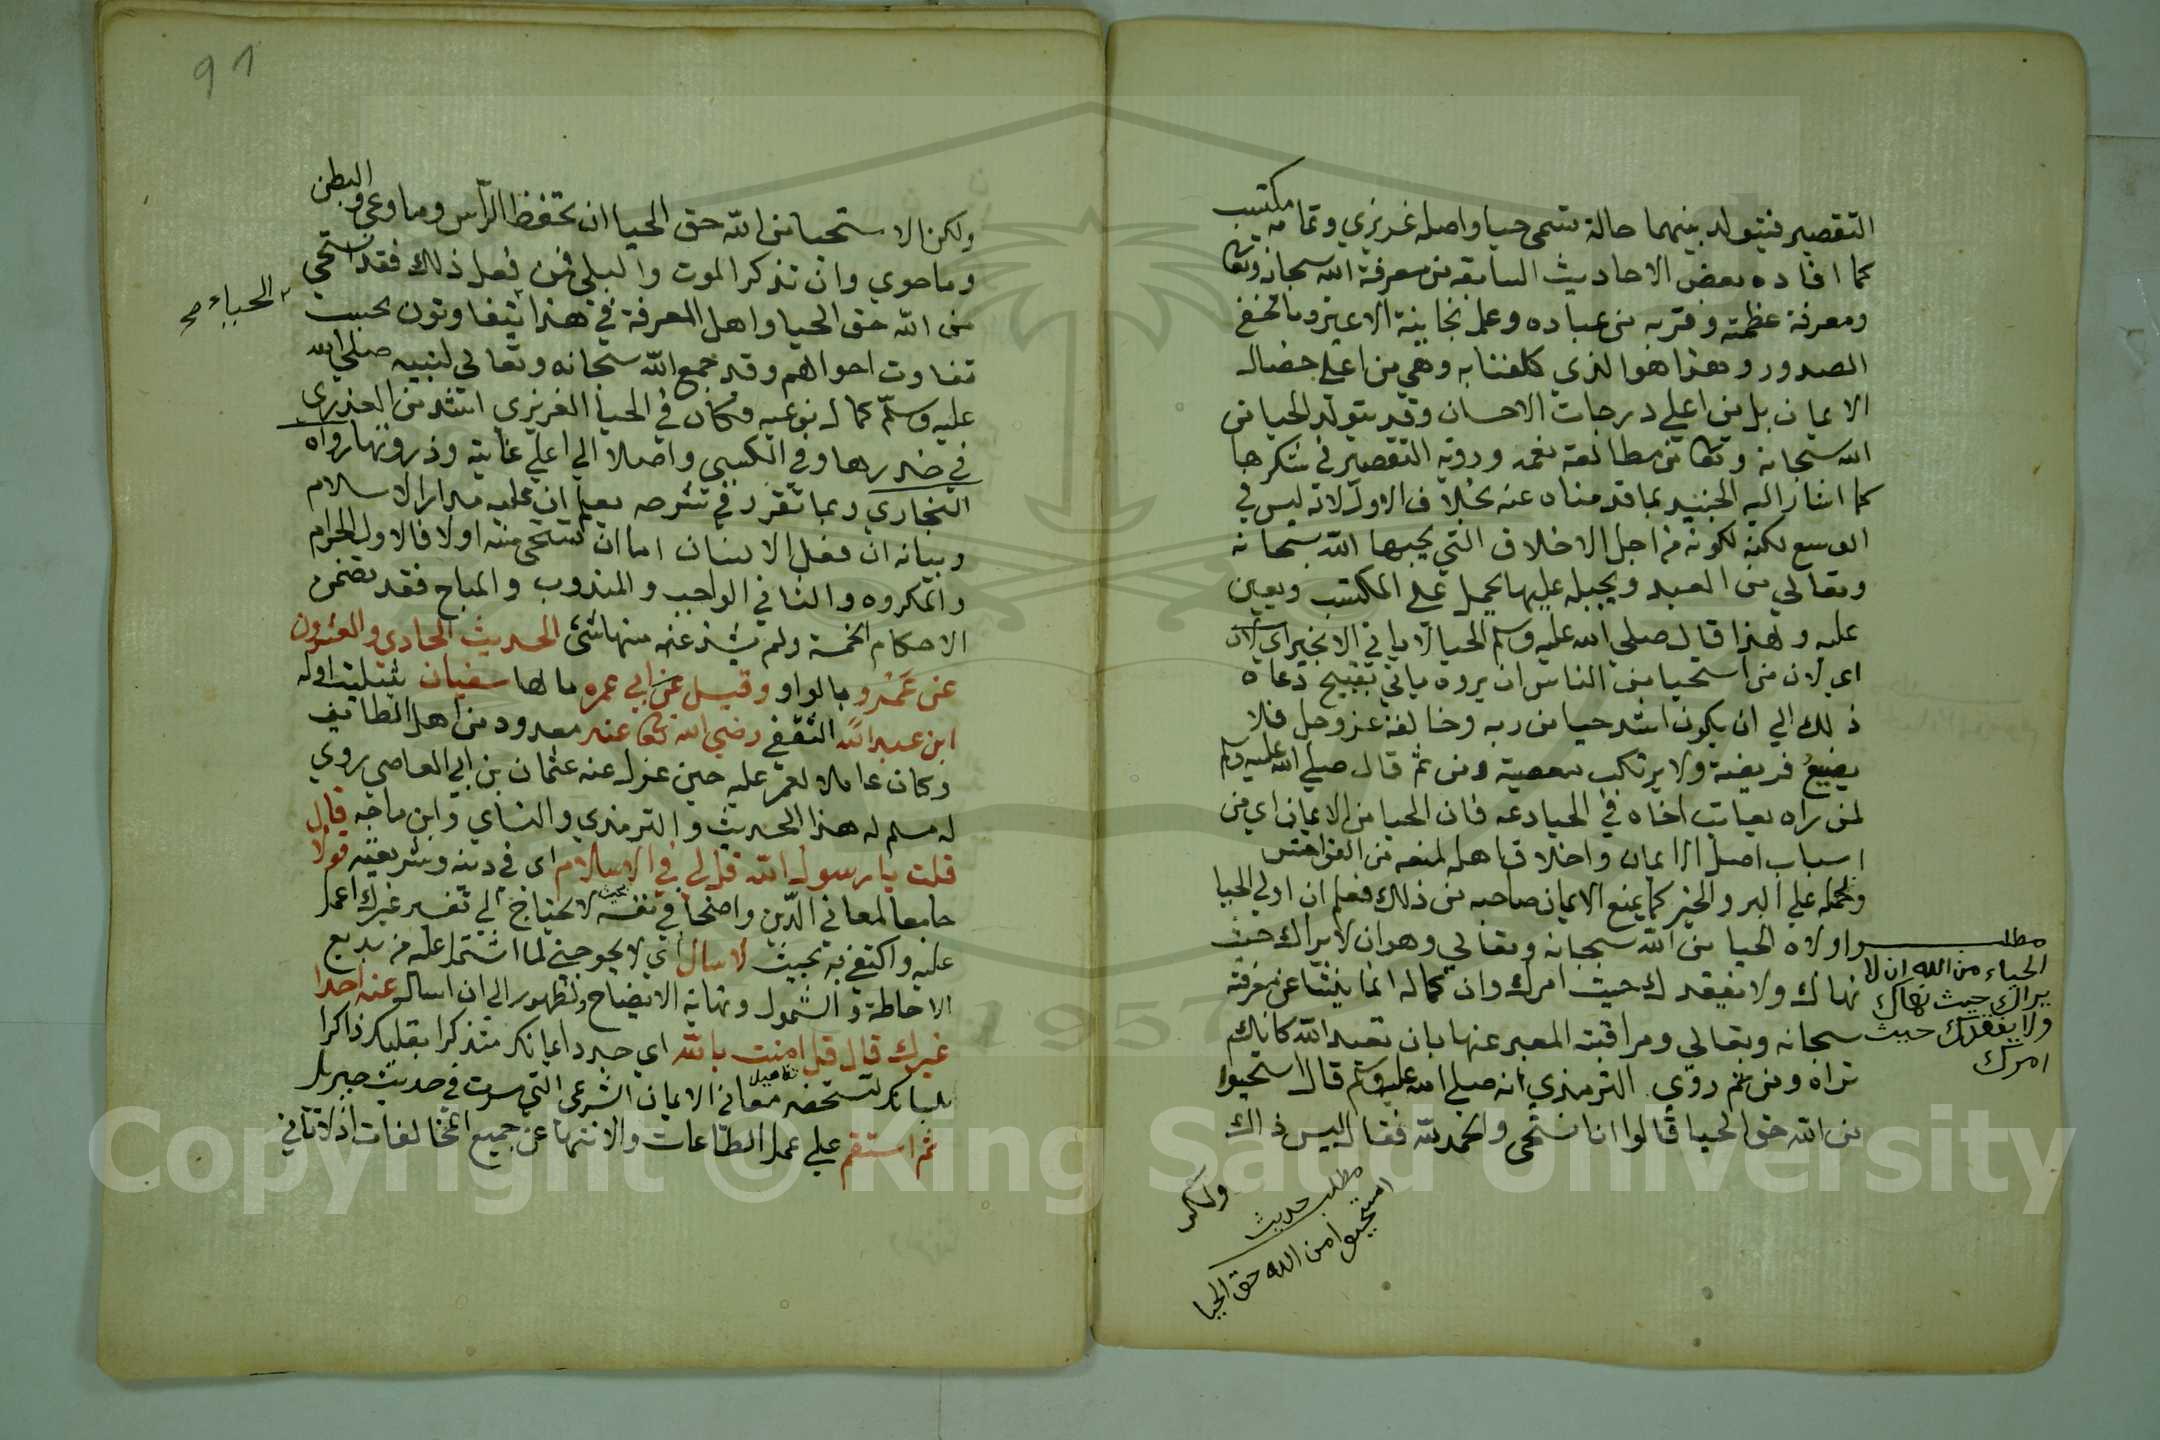 التقصير فيتولد بينهما حالة تسمى حيا واصله غريزي وتمامه مكتسب
كما افاده بعض الاحاديث السابقة من معرفة الله سبحانه وتعالى
ومعرفة عظمته وقربه من عباده وعلمه بخاينة الاعين وما تخفي
الصدور وهذا هو الذي كلفنا به وهي من اعلى خصال
الايمان بل من اعلى درجات الاحسان وقد يتولد الحيا من
الله سبحانه وتعالى من مطالعة نعمه وروية التقصير في شكرها
كما اشار اليه الجنيد بما قدمناه عنه بخلاف الاول لانه ليس في
الوسع لكنه لكونه من اجل الاخلاق التي يحبها الله سبحانه
وتعالي من العبد ويجبله عليها يحمل على المكتسب ويعين
عليه ولهذا قال صلى الله عليه وسلم الحيا لا ياتي الا بخير اي لان
اي لان من استحيا من الناس ان يروه ياتي بقبيح دعاه
ذلك الي ان يكون اشد حيا من ربه وخالقه عز وجل فلا
يضيع فريضة ولا يرتكب معصية ومن ثم قال صلى الله عليه وسلم
لمن راه يعاتب اخاه في الحيا دعه فان الحيا من الايمان اي من
اسباب اصل الايمان واخلاق اهله لمنعه من الفواحش
وحمله علي البر والخير كما يمنع الايمان صاحبه من ذلك فعلم ان اولي الحيا
واولاه الحيا من الله سبحانه وتعالي وهو ان لا يراك حيث
نهاك ولا يفقدك حيث امرك وان كماله انما ينشا عن معرفته
سبحانه وتعالي ومراقبته المعبر عنها بان تعبد الله كانك
تراه ومن ثم روي الترمذي انه صلى الله عليه وسلم قال استحيوا
من الله حق الحيا قالوا انا نستحى والحمد لله فقال ليس ذاك
ولكن
مطلب
الحياء من الله ان لا
يراك حيث نهاك
ولا يفقدك حيث
امرك
مطلب حديث
استحيوا من الله حق الحيا
91
ولكن الاستحيا من الله حق الحيا ان تحفظ الرأس وما وعى والبطن
وما حوي وان تذكر الموت والبلى فمن فعل ذلك فقد استحى
من الله حق الحيا واهل المعرفة في هذا يتفاوتون بحسب
الحياء صح
تفاوت احوالهم وقد جمع الله سبحانه وتعالي لنبيه صلى الله
عليه وسلم كمال نوعيه فكان في الحيا الغريزي اشد من العذرى
في خدرها وفي الكسبي واصلا الي اعلي غايته وذروتها رواه
البخاري وبما تقرر في شرحه يعلم ان عليه مدار الاسلام
وبيانه ان فعل الانسان اما ان يستحى منه اولا فالاول الحرام
والمكروه والثاني الواجب والمندوب والمباح فقد تضمن
الاحكام الخمسة ولم يشذ عنه منها شئ الحديث الحادي والعشرون
عن عمرو بالواو وقيل عن ابي عمره بالها سفيان بتثليث اوله
ابن عبد الله الثقفي رضي الله تعالى عنه معدود من اهل الطائف
وكان عاملا لعمر عليه حين عزل عنه عثمان بن ابي العاصي روي
له مسلم له هذا الحديث والترمذي والنساي وابن ماجه قال
قلت يا رسول الله قل لي في الاسلام اى في دينه وشريعته قولا
جامعا لمعاني الدين واضحا في نفسه بحيث لا يحتاج الي تفسير غيرك اعمل
عليه واكتفي به بحيث لا اسال اي لا يحوجني لما اشتمل عليه من بديع
الاحاطة والشمول ونهاية الايضاح والظهور الي ان اسال عنه احدا
غيرك قال قل امنت بالله اي جدد ايمانك متذكرا بقلبك ذاكرا
بلسانك لتستحضر تفاصيل معاني الايمان الشرعى التي مرت في حديث جبريل
ثم استقم علي عمل الطاعات والانتها عن جميع المخالفات اذ لا تتاتي
1957
Copyright © King Saud University